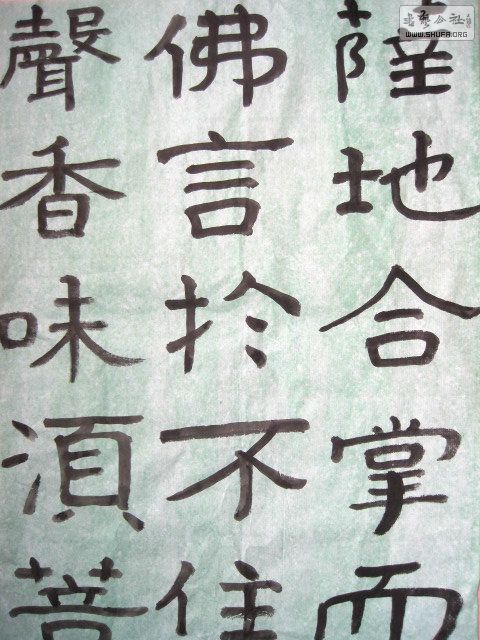 薩地合掌而
佛言扵不住
聲香味湏菩
WWW.SHUFA.ORG